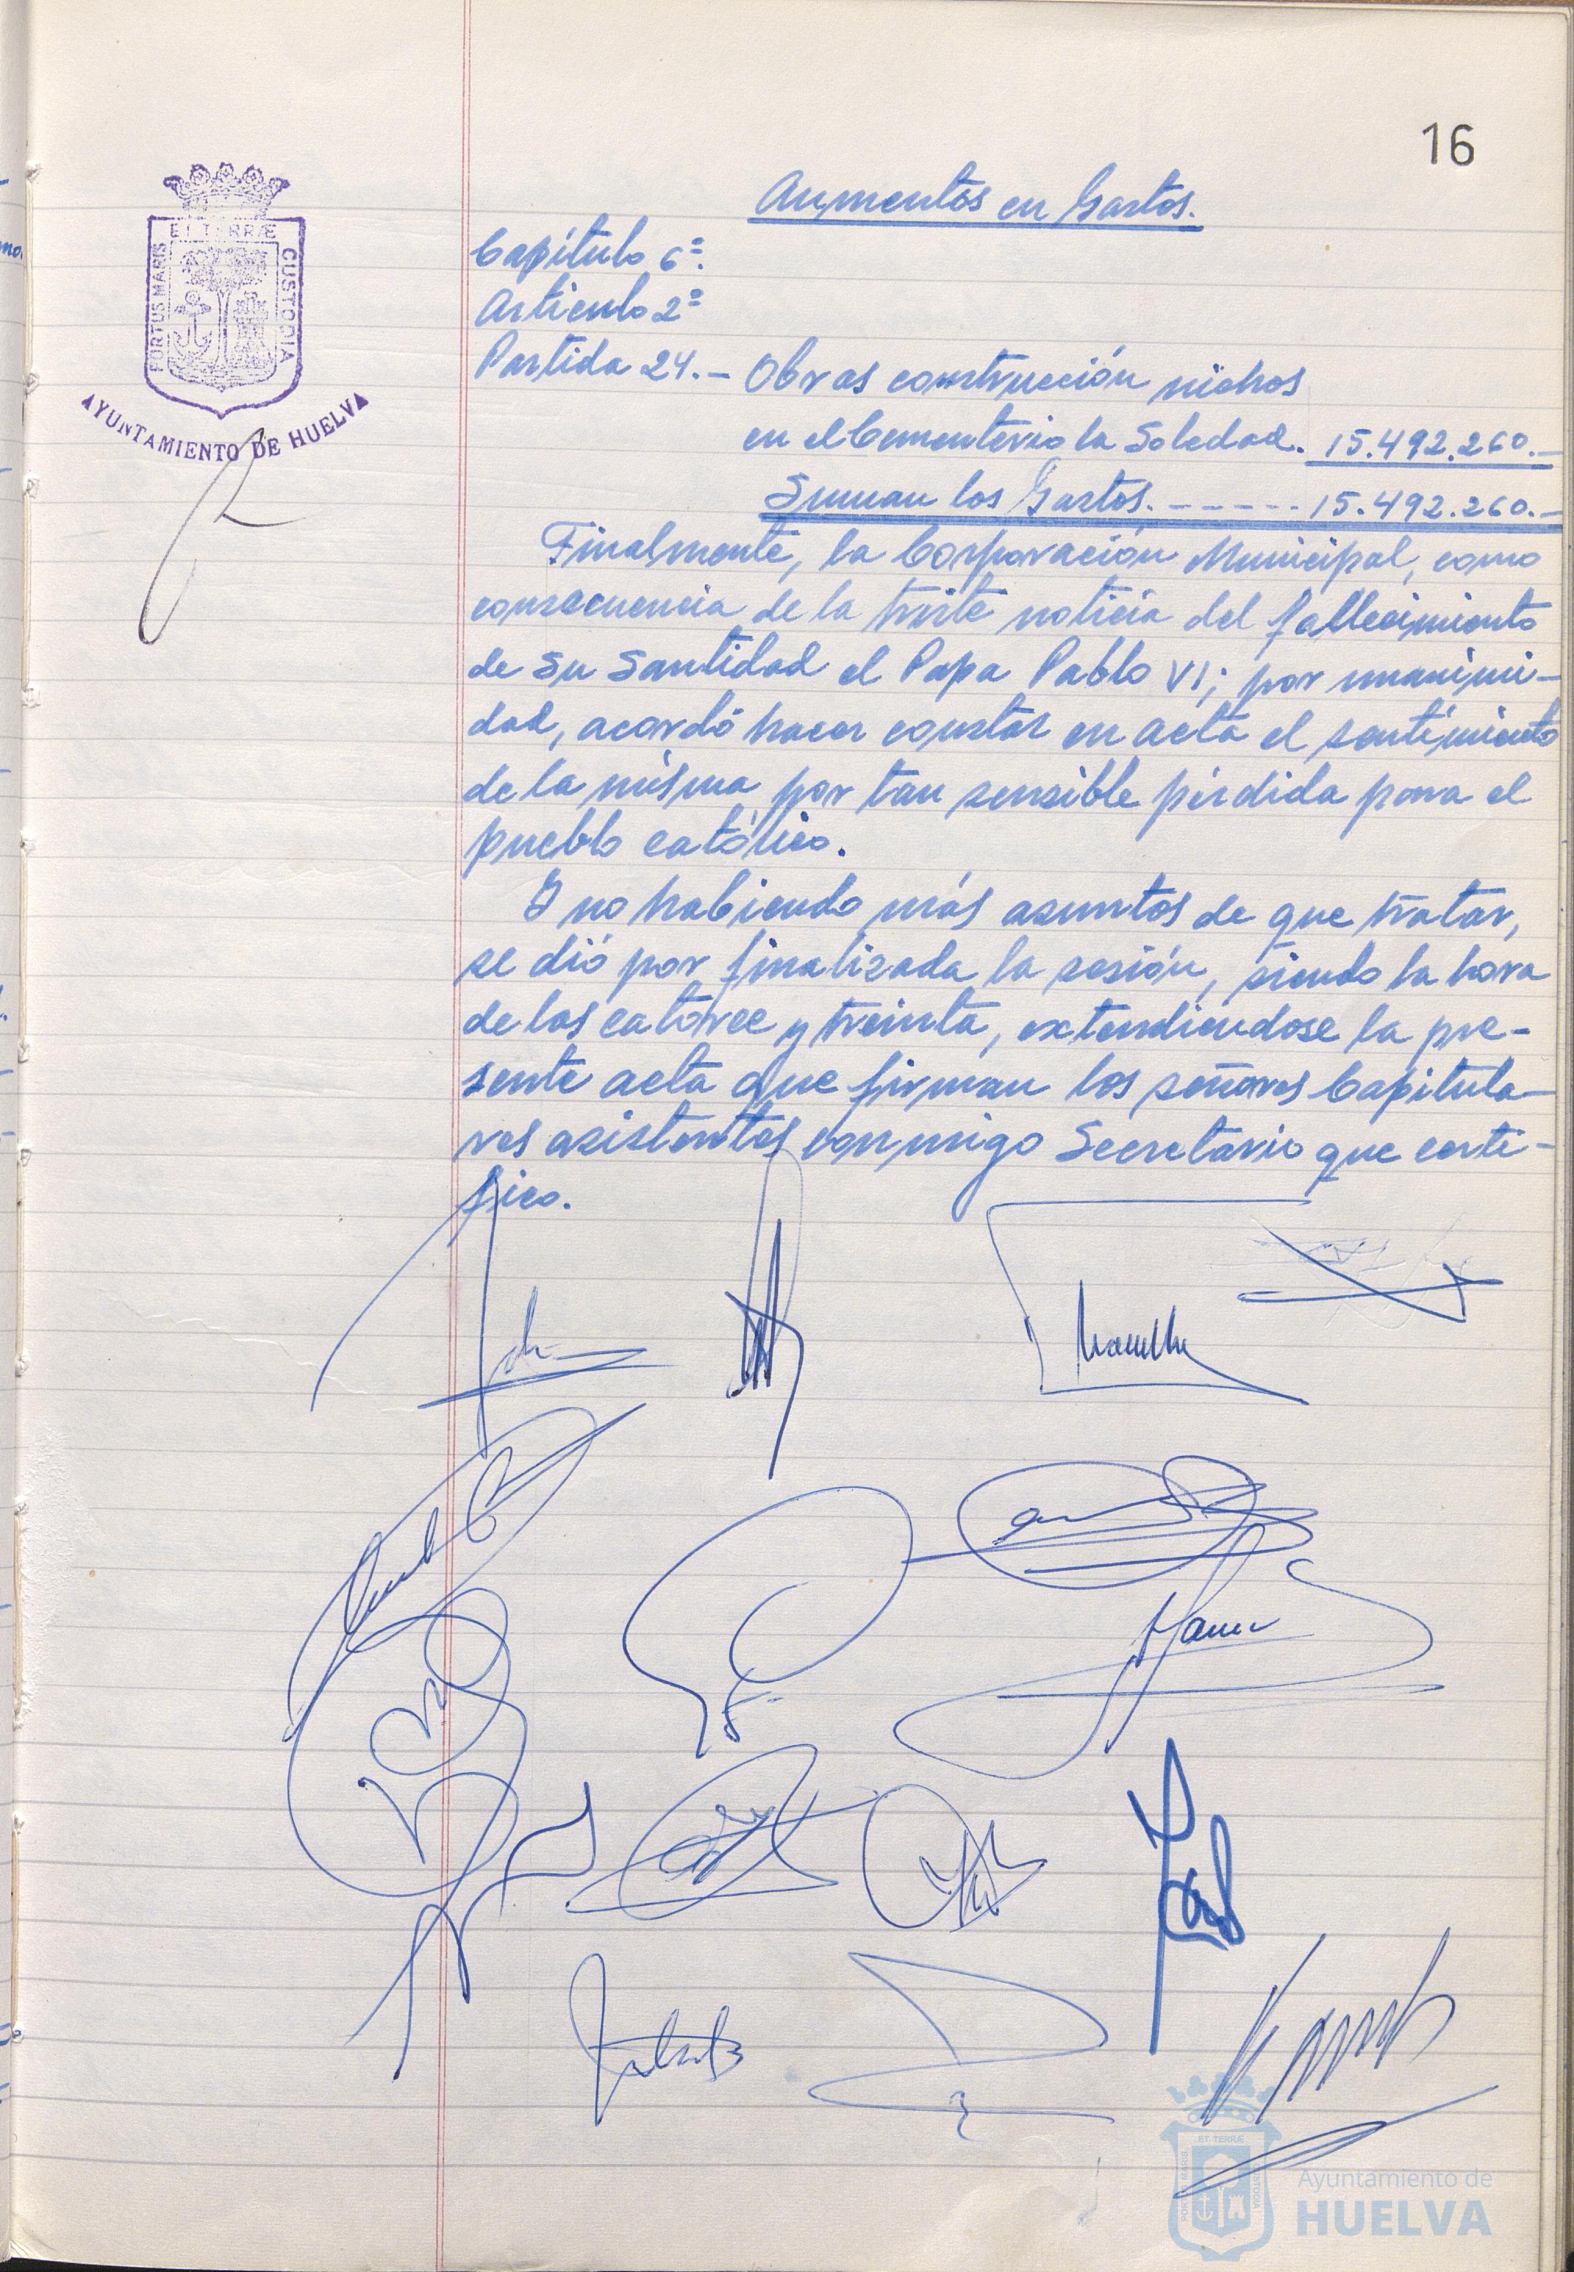 16
ET TERRÆ
PORTUS MARIS
CUSTODIA
AYUNTAMIENTO DE HUELVA
Aumentos en Gastos.
Capítulo 6º.
Artículo 2º
Partida 24.- Obras construcción nichos
en el Cementerio la Soledad. 15.492.260.-
Suman los Gastos.------15.492.260.-
Finalmente, la Corporación Municipal, como
consecuencia de la triste noticia del fallecimiento
de Su Santidad el Papa Pablo VI; por unanimi-
dad, acordó hacer constar en acta el sentimiento
de la misma por tan sensible pérdida para el
pueblo católico.
Y no habiendo más asuntos de que tratar,
se dió por finalizada la sesión, siendo la hora
de las catorce y treinta, extendiendose la pre-
sente acta que firman los señores Capitula-
res asistentes conmigo Secretario que certi-
fico.
ET TERRÆ
PORTUS MARIS
CUSTODIA
Ayuntamiento de
HUELVA